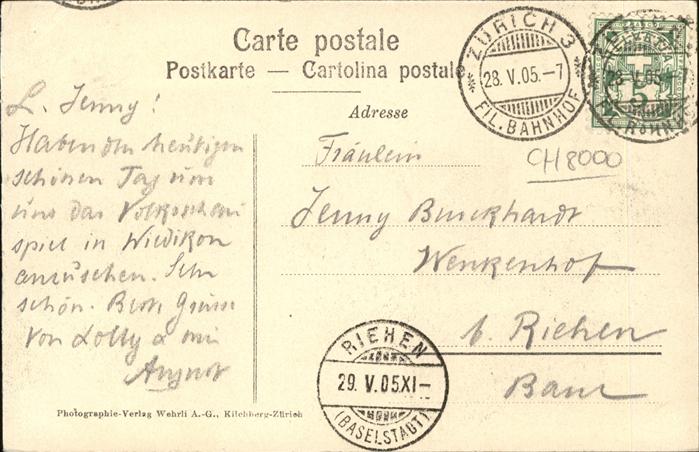 Carte postale
Postkarte — Cartolina postale
Adresse
L. Jenny!
Haben den heutigen
schönen Tag um
uns das Volksschau
spiel in Wiedikon
anzusehen. Sehr
schön. Best. Grüsse
von Lolly & mir
August
Fräulein
Jenny Burckhardt
Wenkenhof
b. Riehen
Basel
CH8000
ZÜRICH 3
28. V. 05. – 7
FIL. BAHNHOF
28. V. 05. – 7
5
RIEHEN
29. V. 05 XI –
(BASELSTADT)
Photographie-Verlag Wehrli A.-G., Kilchberg-Zürich